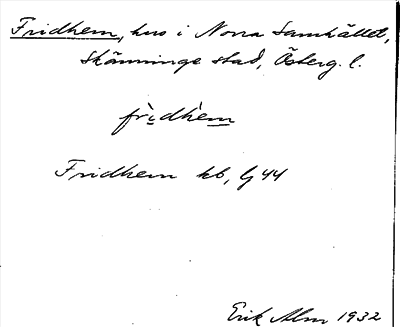 Fridhem, hus i Norra Samhället,
Skänninge stad, Österg. l.
frìdhèm
Fridhem kb, Lj 44
Erik Alm 1932